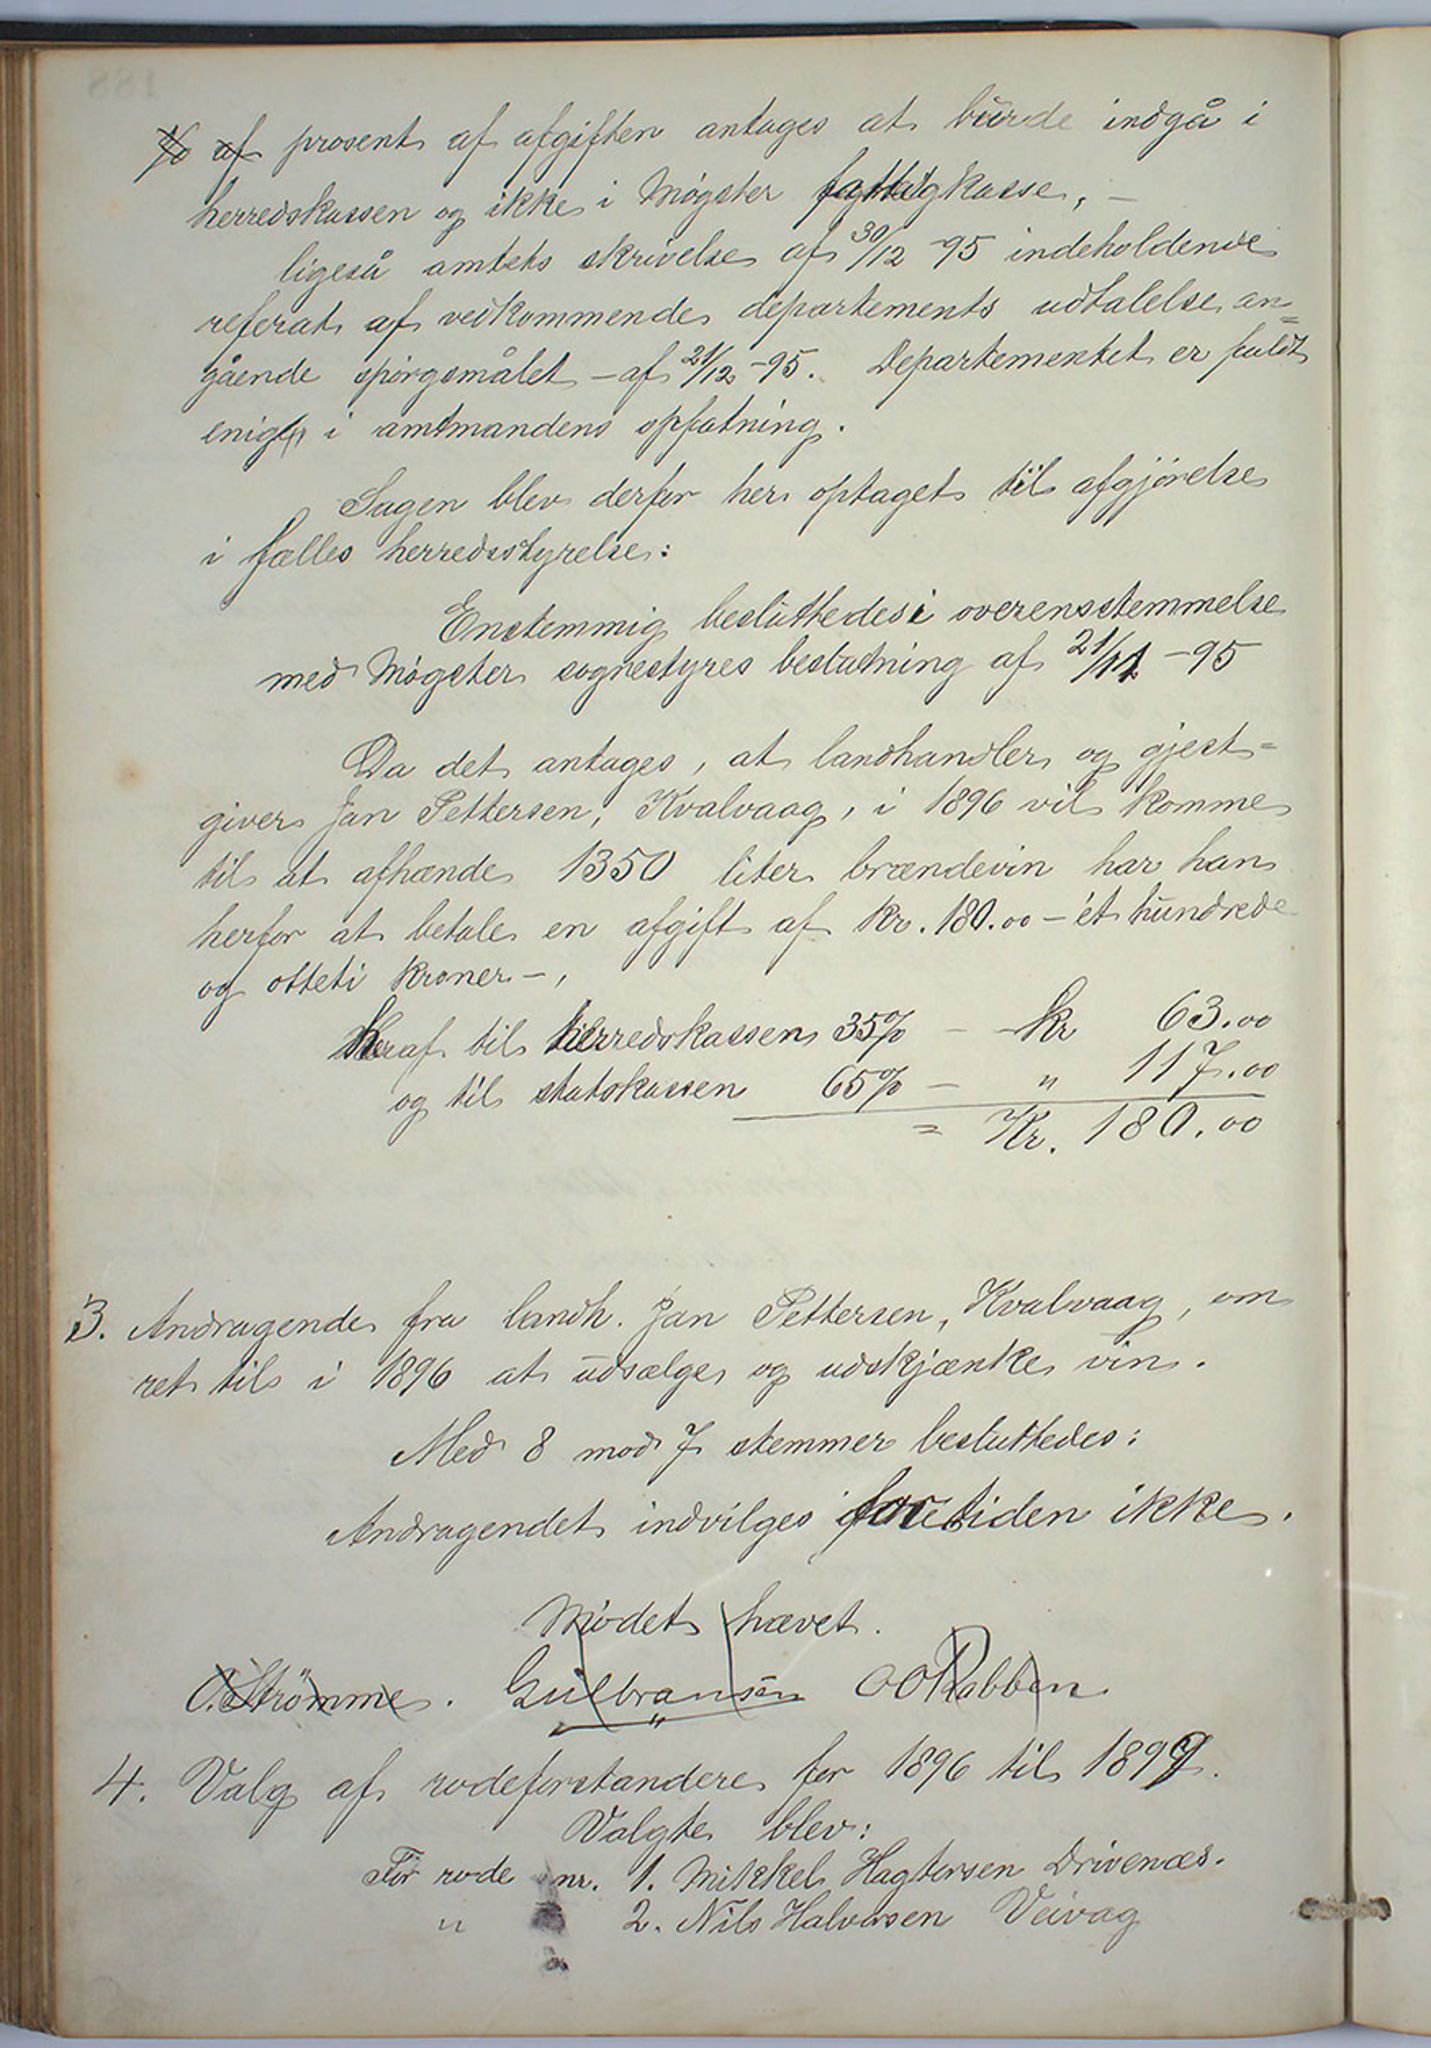 % af prosent af afgiften antages at burde indgå i
herredskassen og ikke i Møgster fattigkasse, –
ligeså amtets skrivelse af 30/12 -95 indeholdende
referat af vedkommende departements udtalelse an=
gående spørgsmålet – af 21/12 -95. Departementet er fuldt
enig i amtmandens opfatning.
Sagen blev derfor her optaget til afgjørelse
i fælles herredsstyrelse:
Enstemmig besluttedes i overensstemmelse
med Møgster sognestyres beslutning af 21/11 -95
Da det antages, at landhandler og gjest=
giver Jan Pettersen, Kvalvaag, i 1896 vil komme
til at afhænde 1350 liter brændevin har han
herfor at betale en afgift af kr. 180.00 – ét hundrede
og otteti kroner –,
Heraf til herredskassen 35% – kr 63.00
og til statskassen 65% – " 117.00
= Kr. 180.00
3. Andragende fra landh. Jan Pettersen, Kvalvaag, om
ret til i 1896 at udsælge og udskjænke vin.
Med 8 mod 7 stemmer besluttedes:
Andragendet indvilges for tiden ikke.
Mødet hævet.
O. Strømme. Gulbransen OO Rabben.
4. Valg af rodeforstandere for 1896 til 1899.
Valgte blev:
For rode nr. 1. Mikkel Hagtorsen Drivenæs.
" 2. Nils Halvorsen Veivag